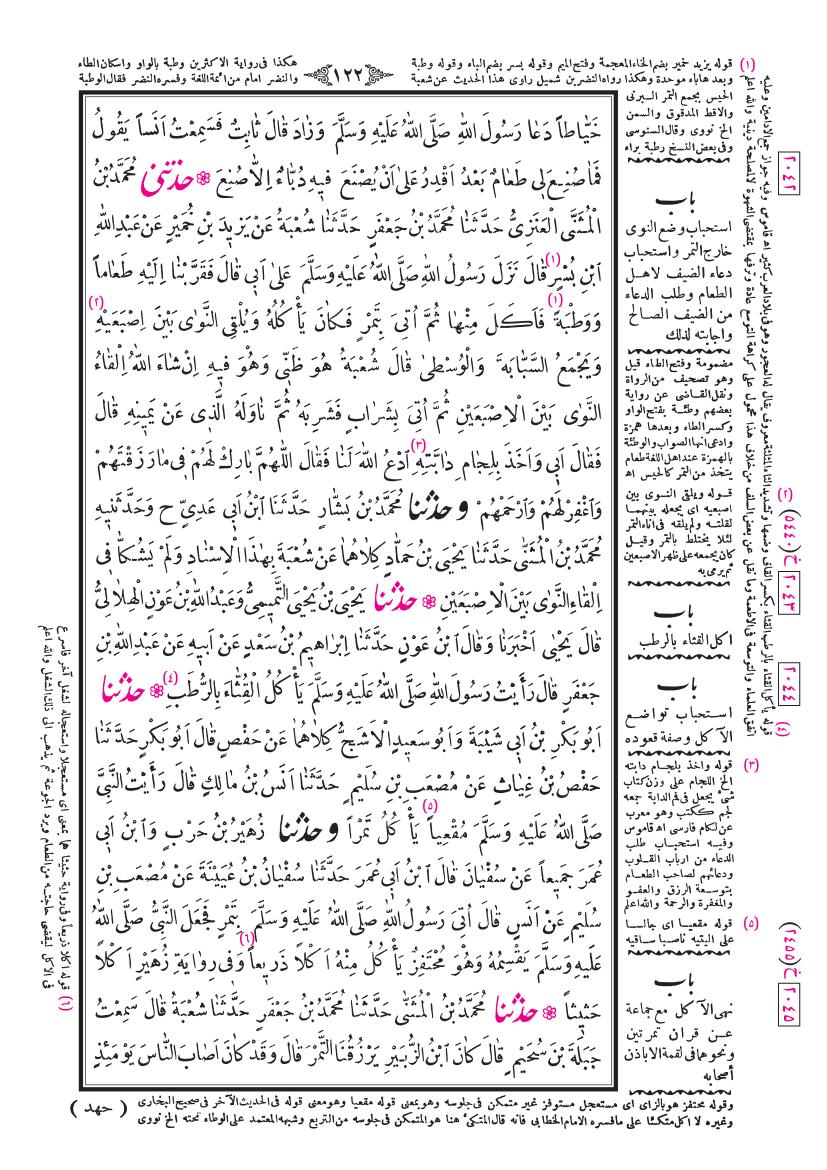 ﴿١٢٢﴾
(١) قوله يزيد خمير بضم الخاء المعجمة وفتح الميم وقوله يسر بضم الباء وقوله وطبة
هكذا فى رواية الاكثرين وطبة بالواو واسكان الطاء
وبعدها باء موحدة وهكذا رواه النضر بن شميل راوى هذا الحديث عن شعبة
والنضر امام من ائمة اللغة وفسره النضر فقال الوطبة
الحيس يجمع التمر البرنى
والاقط المدقوق والسمن
الخ نووى وقال السنوسى
وفى بعض النسخ رطبة براء
٢٠٤٢
باب
استحباب وضع النوى
خارج التمر واستحباب
دعاء الضيف لاهل
الطعام وطلب الدعاء
من الضيف الصالح
واجابته لذلك
مضمومة وفتح الطاء قيل
وهو تصحيف من الرواة
ونقل القاضى عن رواية
بعضهم وطئة بفتح الواو
وكسر الطاء وبعدها همزة
وادعى انها الصواب والوطئة
بالهمزة عند اهل اللغة طعام
يتخذ من التمر كالحيس اه
(٢) قوله ويلقى النوى بين
اصبعيه اى يجعله بينهما
لقلته ولم يلقه فى اناء التمر
لئلا يختلط بالتمر وقيل
كان يجمعه على ظهر الاصبعين
ثم يرمى به
خ (٥٤٤٠)
٢٠٤٣
باب
اكل القثاء بالرطب
٢٠٤٤
باب
استحباب تواضع
الآكل وصفة قعوده
(٣) قوله واخذ بلجام دابته
الخ اللجام على وزن كتاب
شئ يجعل فى فم الدابة جمعه
لجم ككتب وهو معرب
عن لكام فارسى اه قاموس
وفيه استحباب طلب
الدعاء من ارباب القلوب
ودعائهم لصاحب الطعام
بتوسعة الرزق والعفو
والمغفرة والرحمة والله اعلم
(٥) قوله مقعيا اى جالسا
على اليتيه ناصبا ساقيه
خ (٢٤٥٥)
٢٠٤٥
باب
نهى الآكل مع جماعة
عن قران تمرتين
ونحوهما فى لقمة الا باذن
أصحابه
خَيَّاطاً دَعَا رَسُولَ اللهِ صَلَّى اللهُ عَلَيْهِ وَسَلَّمَ وَزَادَ قَالَ ثَابِتٌ فَسَمِعْتُ اَنَساً يَقُولُ
فَمَا صُنِعَ لِى طَعَامٌ بَعْدُ اَقْدِرُ عَلَى اَنْ يُصْنَعَ فِيهِ دُبَّاءٌ اِلاَّ صُنِعَ ۞ حَدَّثَنِى مُحَمَّدُ بْنُ
الْمُثَنَّى الْعَنَزِىُّ حَدَّثَنَا مُحَمَّدُ بْنُ جَعْفَرٍ حَدَّثَنَا شُعْبَةُ عَنْ يَزِيدَ بْنِ خُمَيْرٍ عَنْ عَبْدِ اللهِ
ابْنِ بُسْرٍ (١) قَالَ نَزَلَ رَسُولُ اللهِ صَلَّى اللهُ عَلَيْهِ وَسَلَّمَ عَلَى اَبِى قَالَ فَقَرَّبْنَا اِلَيْهِ طَعَاماً
وَوَطْبَةً (١) فَاَكَلَ مِنْهَا ثُمَّ اُتِىَ بِتَمْرٍ فَكَانَ يَأْكُلُهُ وَيُلْقِى النَّوَى بَيْنَ اِصْبَعَيْهِ (٢)
وَيَجْمَعُ السَّبَّابَةَ وَالْوُسْطَى قَالَ شُعْبَةُ هُوَ ظَنِّى وَهُوَ فِيهِ اِنْ شَاءَ اللهُ اِلْقَاءُ
النَّوَى بَيْنَ الْاِصْبَعَيْنِ ثُمَّ اُتِىَ بِشَرَابٍ فَشَرِبَهُ ثُمَّ نَاوَلَهُ الَّذِى عَنْ يَمِينِهِ قَالَ
فَقَالَ اَبِى وَاَخَذَ بِلِجَامِ دَابَّتِهِ (٣) اُدْعُ اللهَ لَنَا فَقَالَ اللّٰهُمَّ بَارِكْ لَهُمْ فِى مَا رَزَقْتَهُمْ
وَاغْفِرْ لَهُمْ وَارْحَمْهُمْ وحدثنا مُحَمَّدُ بْنُ بَشَّارٍ حَدَّثَنَا ابْنُ اَبِى عَدِىٍّ ح وَحَدَّثَنِيهِ
مُحَمَّدُ بْنُ الْمُثَنَّى حَدَّثَنَا يَحْيَى بْنُ حَمَّادٍ كِلَاهُمَا عَنْ شُعْبَةَ بِهٰذَا الْاِسْنَادِ وَلَمْ يَشُكَّا فِى
اِلْقَاءِ النَّوَى بَيْنَ الْاِصْبَعَيْنِ ۞ حدثنا يَحْيَى بْنُ يَحْيَى التَّمِيمِىُّ وَعَبْدُ اللهِ بْنُ عَوْنٍ الْهِلَالِىُّ
قَالَ يَحْيَى اَخْبَرَنَا وَقَالَ ابْنُ عَوْنٍ حَدَّثَنَا اِبْرَاهِيمُ بْنُ سَعْدٍ عَنْ اَبِيهِ عَنْ عَبْدِ اللهِ بْنِ
جَعْفَرٍ قَالَ رَأَيْتُ رَسُولَ اللهِ صَلَّى اللهُ عَلَيْهِ وَسَلَّمَ يَأْكُلُ الْقِثَّاءَ بِالرُّطَبِ (٤) ۞ حدثنا
اَبُو بَكْرِ بْنُ اَبِى شَيْبَةَ وَاَبُو سَعِيدٍ الْاَشَجُّ كِلَاهُمَا عَنْ حَفْصٍ قَالَ اَبُو بَكْرٍ حَدَّثَنَا
حَفْصُ بْنُ غِيَاثٍ عَنْ مُصْعَبِ بْنِ سُلَيْمٍ حَدَّثَنَا اَنَسُ بْنُ مَالِكٍ قَالَ رَأَيْتُ النَّبِىَّ
صَلَّى اللهُ عَلَيْهِ وَسَلَّمَ مُقْعِياً (٥) يَأْكُلُ تَمْراً وحدثنا زُهَيْرُ بْنُ حَرْبٍ وَابْنُ اَبِى
عُمَرَ جَمِيعاً عَنْ سُفْيَانَ قَالَ ابْنُ اَبِى عُمَرَ حَدَّثَنَا سُفْيَانُ بْنُ عُيَيْنَةَ عَنْ مُصْعَبِ بْنِ
سُلَيْمٍ عَنْ اَنَسٍ قَالَ اُتِىَ رَسُولُ اللهِ صَلَّى اللهُ عَلَيْهِ وَسَلَّمَ بِتَمْرٍ فَجَعَلَ النَّبِىُّ صَلَّى اللهُ
عَلَيْهِ وَسَلَّمَ يَقْسِمُهُ وَهُوَ مُحْتَفِزٌ يَأْكُلُ مِنْهُ اَكْلاً ذَرِيعاً (٦) وَفِى رِوَايَةِ زُهَيْرٍ اَكْلاً
حَثِيثاً ۞ حدثنا مُحَمَّدُ بْنُ الْمُثَنَّى حَدَّثَنَا مُحَمَّدُ بْنُ جَعْفَرٍ حَدَّثَنَا شُعْبَةُ قَالَ سَمِعْتُ
جَبَلَةَ بْنَ سُحَيْمٍ قَالَ كَانَ ابْنُ الزُّبَيْرِ يَرْزُقُنَا التَّمْرَ قَالَ وَقَدْ كَانَ اَصَابَ النَّاسَ يَوْمَئِذٍ
(٤) قوله يأكل القثاء بالرطب القثاء بكسر القاف وضمها وتشديد الثاء المثلثة معروف يقال له العجور وهو فى بلاد العرب كثير اه قاموس وفيه جواز جمع الادامين وعليه
اتفق العلماء والتوسعة فى الاطعمة وما نقل عن بعض السلف من خلاف هذا محمول على كراهة التوسع عادة وترفها بمقتضى الشهوة لا لمصلحة دينية والله اعلم
(٦) قوله اكلا ذريعا وفى رواية حثيثا هما بمعنى اى مستعجلا واستعجاله لشغل آخر فاسرع
فى الاكل ليقضى حاجته من الطعام ويرد الجوعة ثم يذهب الى ذلك الشغل والله اعلم
وقوله محتفز هو بالزاى اى مستعجل مستوفز غير متمكن فى جلوسه وهو بمعنى قوله مقعيا وهو معنى قوله فى الحديث الآخر فى صحيح البخارى
وغيره لا اكل متكئا على ما فسره الامام الخطابى فانه قال المتكئ هنا هو المتمكن فى جلوسه من التربع وشبهه المعتمد على الوطاء تحته الخ نووى
( جهد )